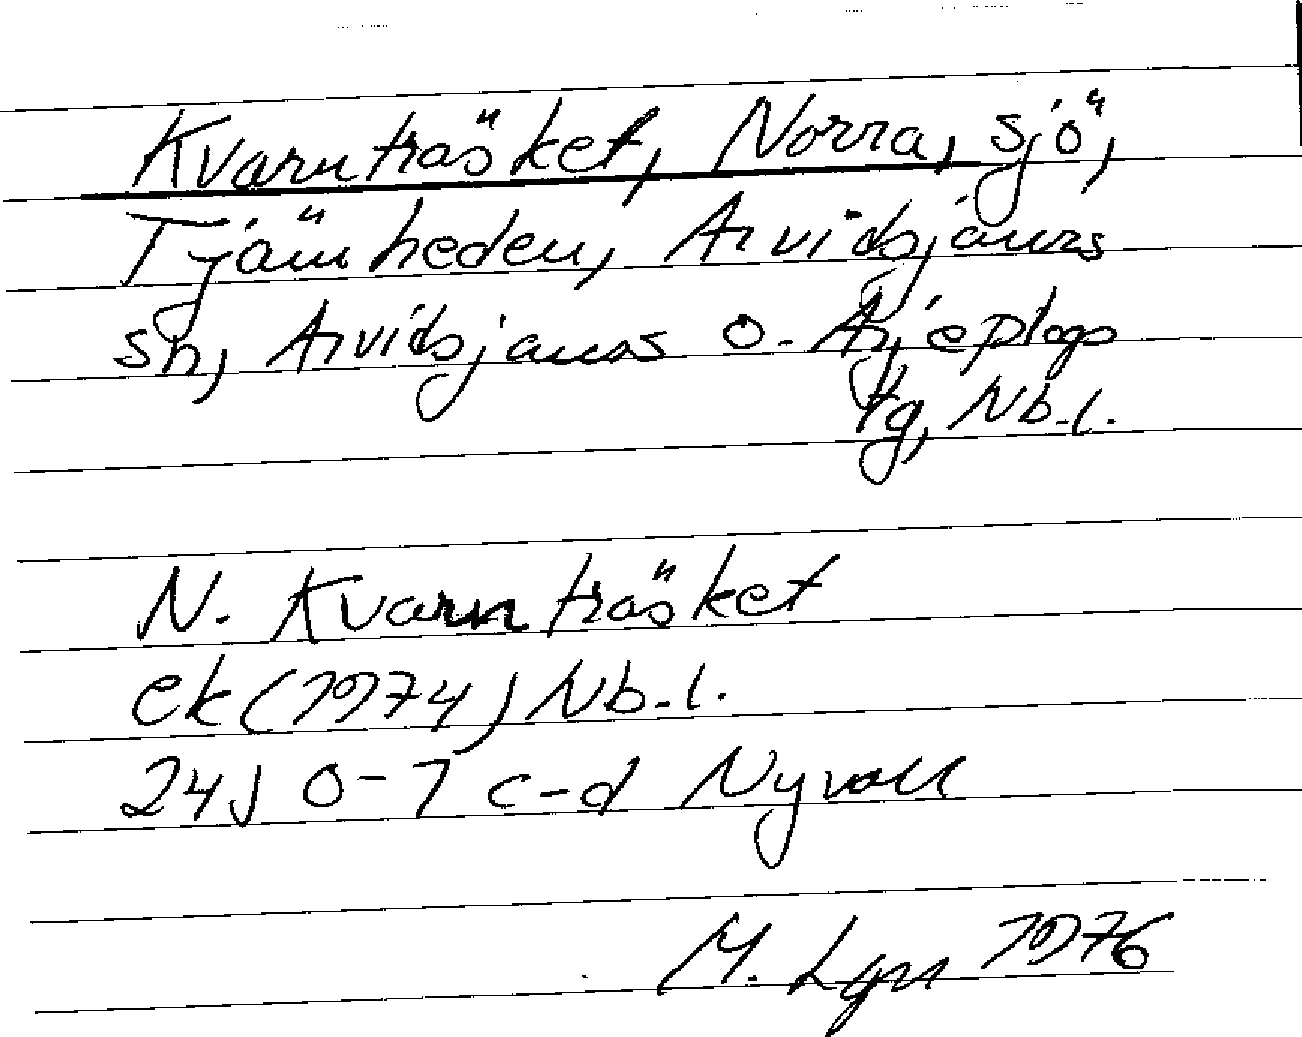 Kvarnträsket, Norra, sjö,
Tjärnheden, Arvidsjaurs
sn, Arvidsjaurs o. Arjeplogs
tg, Nb. l.
N. Kvarnträsket
ek (1974) Nb. l.
24J 0-1 c-d Nyvall
M. 1976